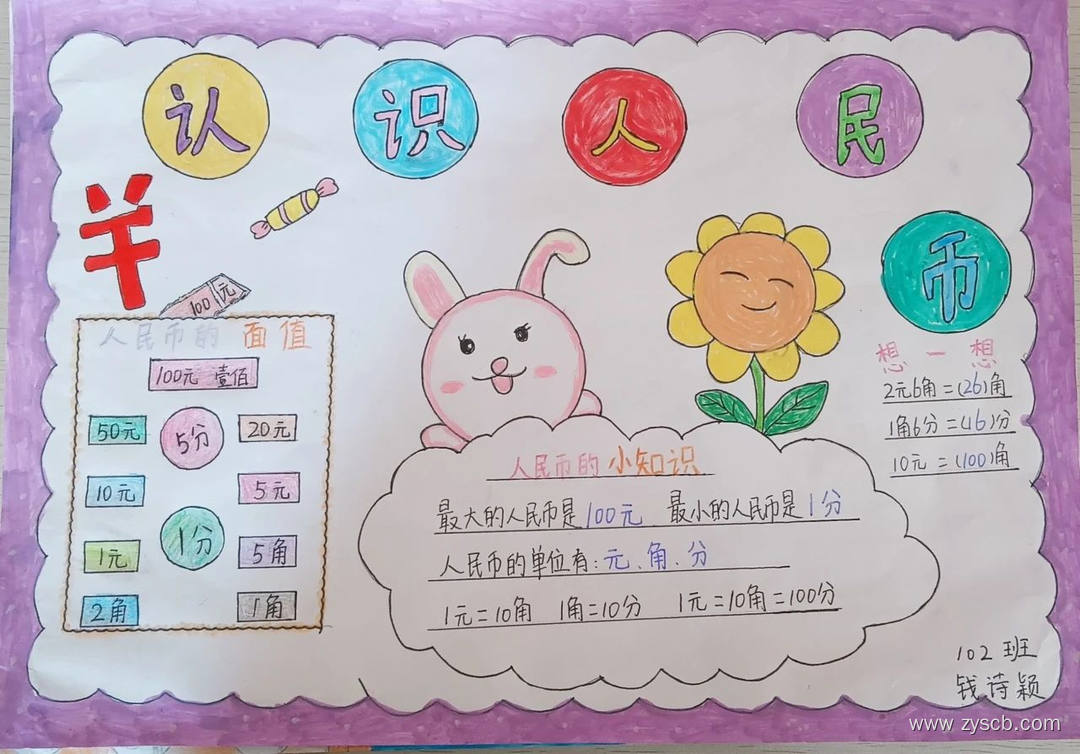 认识人民币
羊
100元
人民币的 面值
100元 壹佰
50元 5分 20元
10元 5元
1元 1分 5角
2角 1角
人民币的小知识
最大的人民币是100元 最小的人民币是1分
人民币的单位有:元、角、分
1元=10角 1角=10分 1元=10角=100分
想一想
2元6角=(26)角
1角6分=(16)分
10元=(100)角
102班
钱诗颖
www.zyscb.com